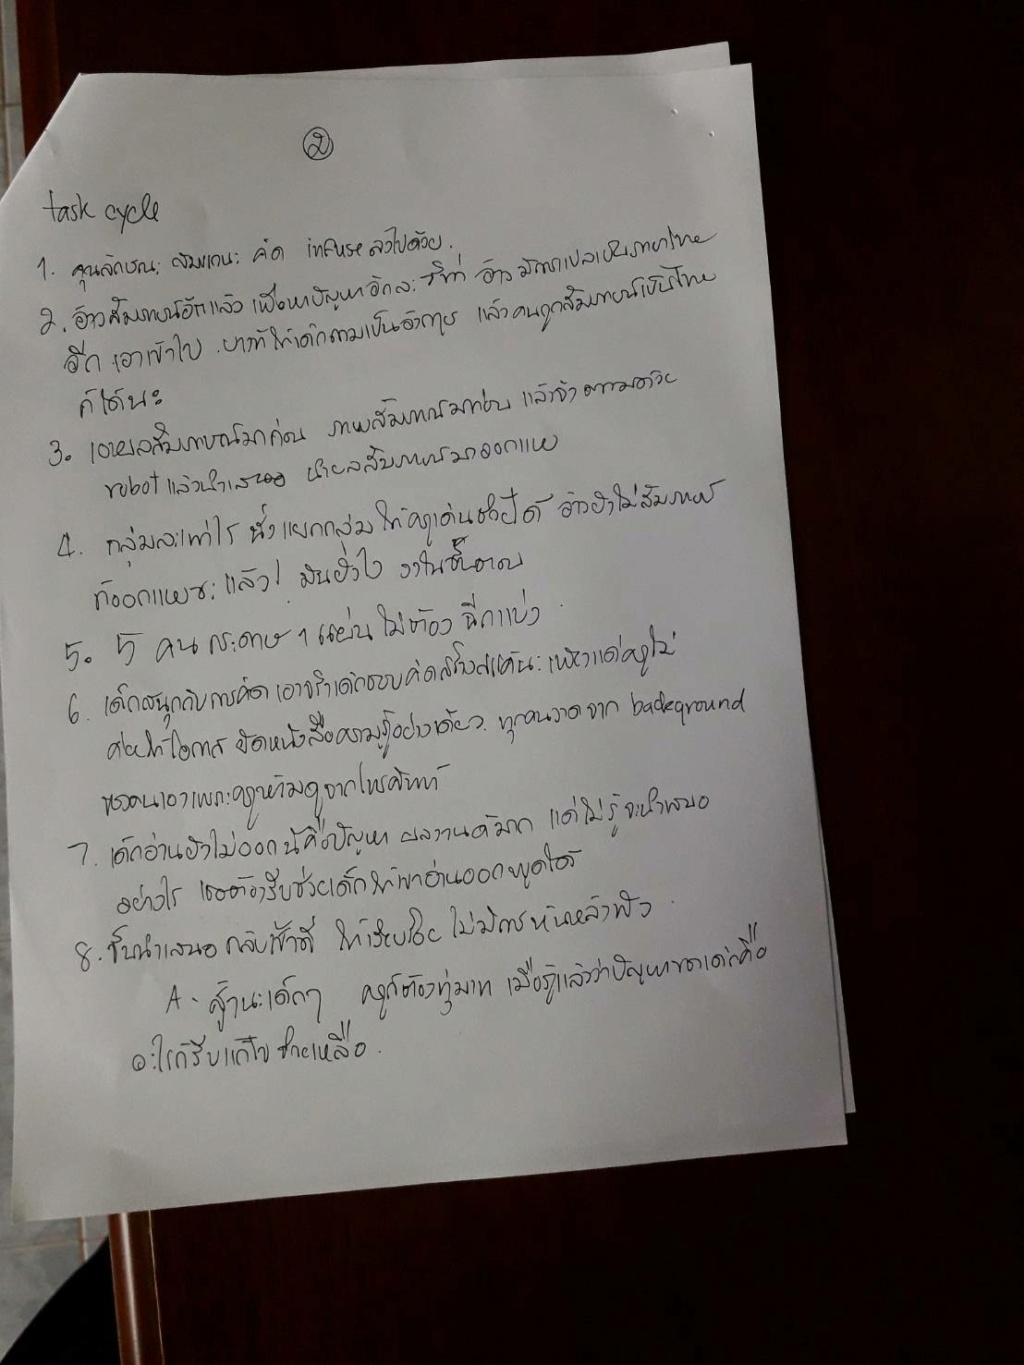 ②
task cycle
1. คุณลักษณะ สมรรถนะ คิด infuse ลงไปด้วย.
2. อ้าวสัมภาษณ์อีกแล้ว เพื่อหาปัญหาอีกละ อ้าว มีการแปลเป็นภาษาไทย
อีก เอาเข้าไป ให้เด็กถามเป็นอังกฤษ แล้วคนถูกสัมภาษณ์เป็นไทย
ก็ได้นะ
3. เอาผลสัมภาษณ์มาก่อน สัมภาษณ์มาก่อน แล้วจึง
robot แล้วนำเสนอ นำผลสัมภาษณ์มาออกแบบ
4. กลุ่มละเท่าไร นั่งแยกกลุ่ม ให้ อ้าวยังไม่สัมภาษณ์
ก็ออกแบบซะแล้ว! มันยังไง งงในขั้นตอน
5. 5 คน กระดาษ 1 แผ่น ไม่ต้อง ฉีกแบ่ง.
6. เด็กสนุกกับการคิด เอาจริงเด็กชอบคิดสร้างสรรค์นะ เพียงแต่ครูไม่
ค่อยให้โอกาส ยัดหนังสือความรู้อย่างเดียว. ทุกคนวาดจาก background
ของตนเองเพราะครูห้ามดูจากโทรศัพท์
7. เด็กอ่านยังไม่ออก นี่คือปัญหา ผลงานดีมาก แต่ไม่รู้จะนำเสนอ
อย่างไร เธอต้องรีบช่วยเด็กให้เขาอ่านออกพูดได้
8. ขั้นนำเสนอ กลับเข้าที่ ให้เรียบร้อย ไม่มีการหันหลังฟัง.
A - สู้ๆนะเด็กๆ ครูก็ต้องทุ่มเท เมื่อรู้แล้วว่าปัญหาของเด็กคือ
อะไรก็รีบแก้ไข ช่วยเหลือ.